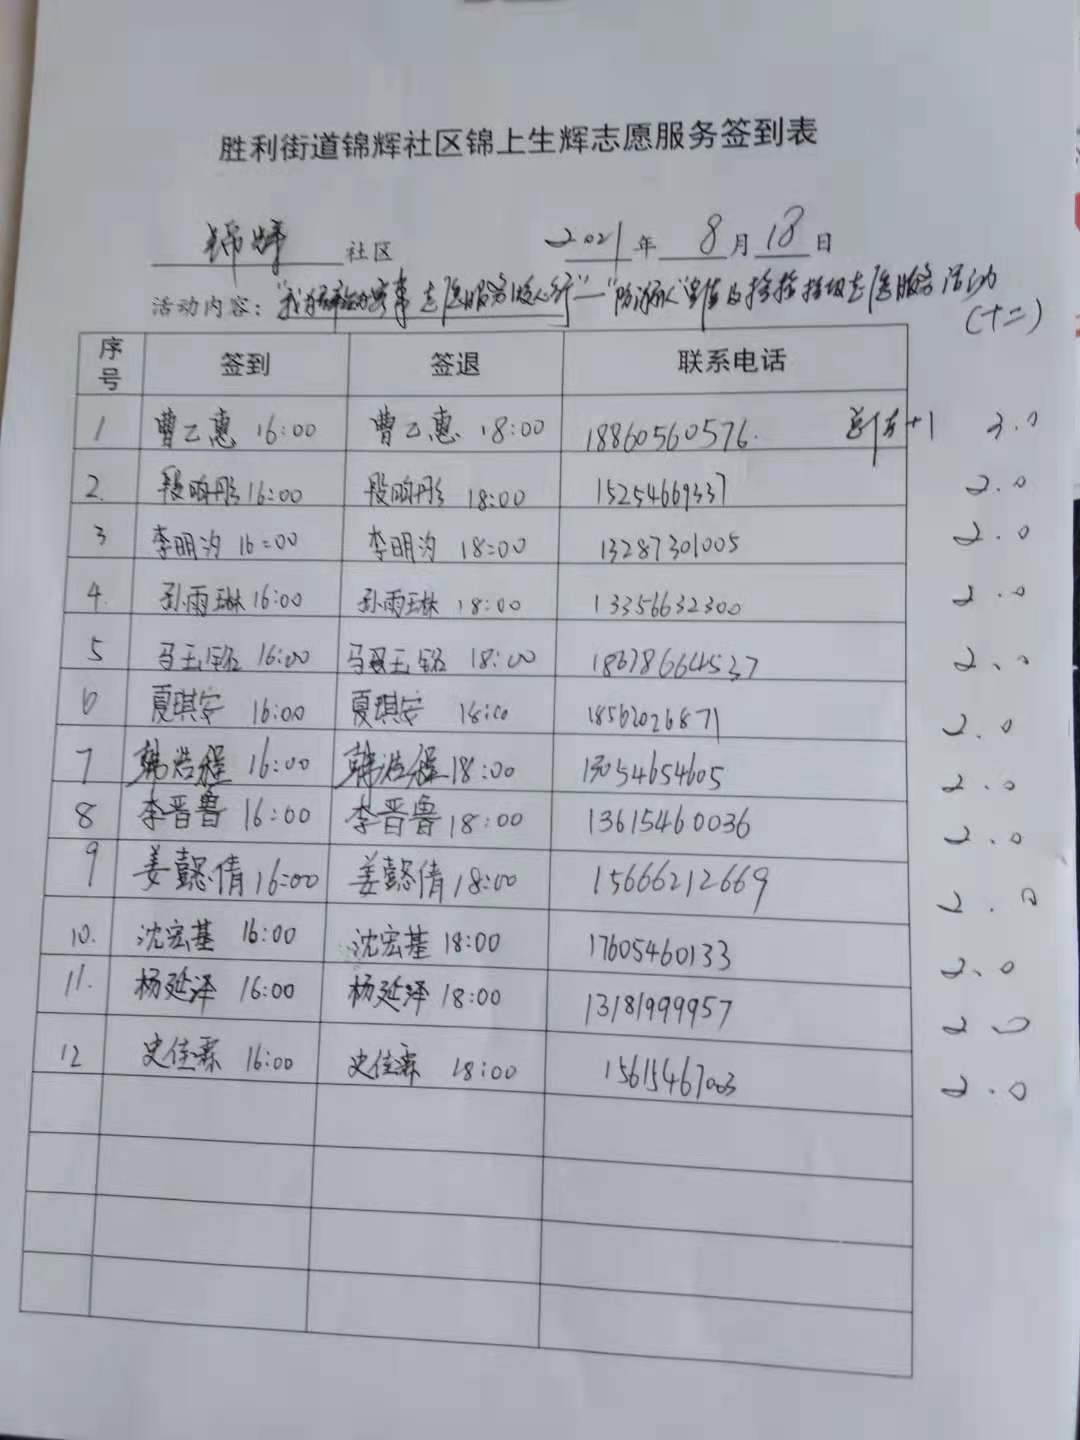 胜利街道锦辉社区锦上生辉志愿服务签到表
锦辉 社区 2021年 8月18日
活动内容："我为群众办实事 志愿服务伴我行"—"防溺水"宣传及捡拾垃圾志愿服务活动
(十二)
序号 签到 签退 联系电话
1 曹乙惠 16:00 曹乙惠 18:00 18860560576. +1 3.0
2. 段晌彤 16:00 段晌彤 18:00 15254669337 2.0
3 李明汋 16:00 李明汋 18:00 13287301005 2.0
4. 孙雨琳 16:00 孙雨琳 18:00 13356632300 2.0
5 马玉铭 16:00 马玉铭 18:00 18678664537 2.0
6 夏琪安 16:00 夏琪安 18:00 18562026871 2.0
7 韩浩程 16:00 韩浩程 18:00 13054654605 2.0
8 李晋鲁 16:00 李晋鲁 18:00 13615460036 2.0
9 姜懿倩 16:00 姜懿倩 18:00 15666212669 2.0
10. 沈宏基 16:00 沈宏基 18:00 17605460133 2.0
11. 杨延泽 16:00 杨延泽 18:00 13181999957 2.0
12 史佳霖 16:00 史佳霖 18:00 15615467003 2.0